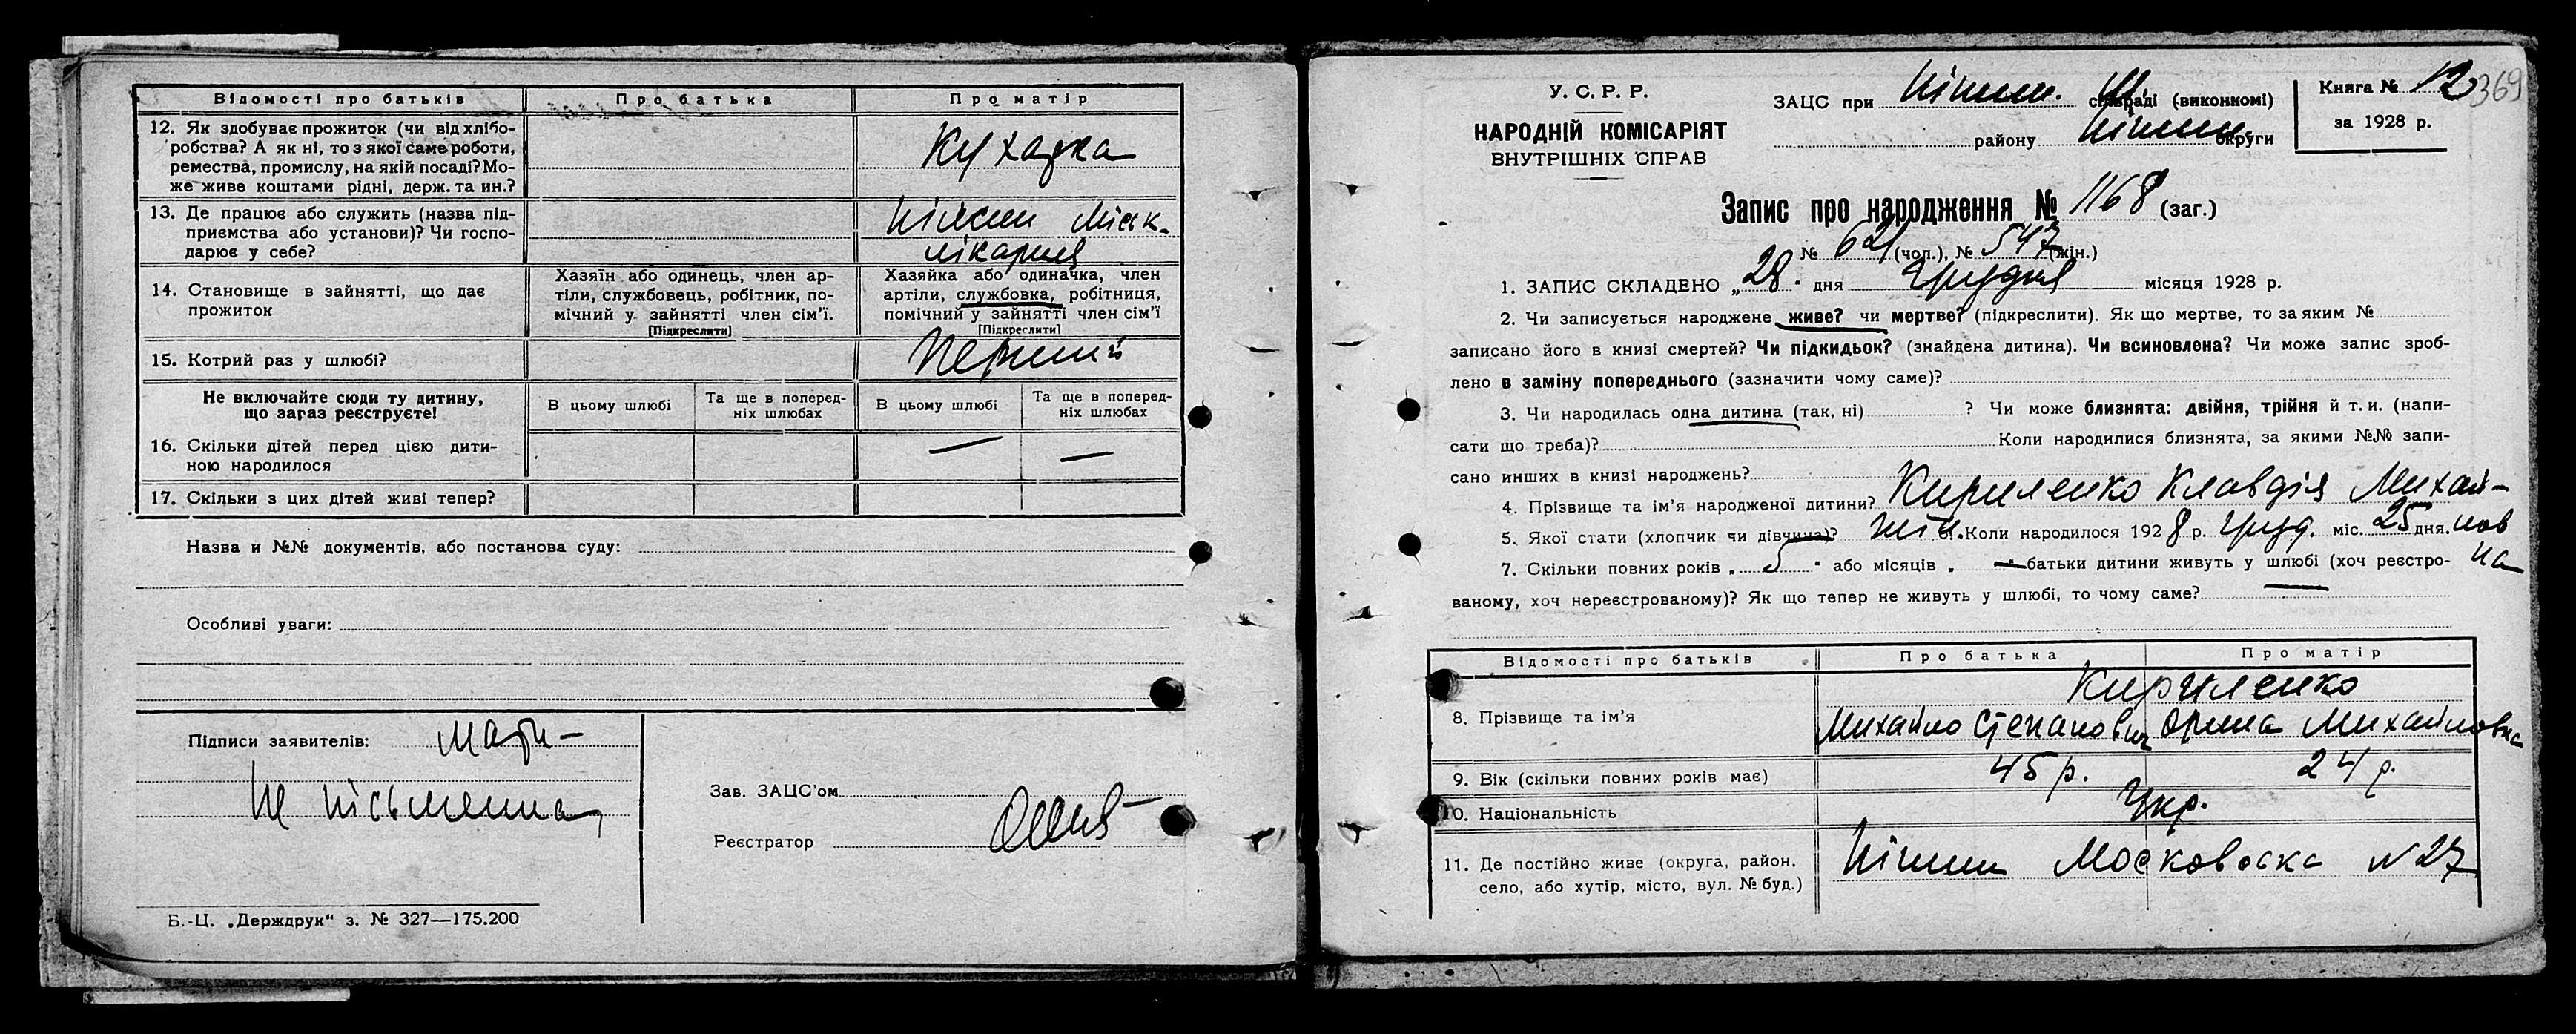 Відомості про батьків Про батька Про матір
12. Як здобуває прожиток (чи від хлібо-
робства? А як ні, то з якої саме роботи,
ремества, промислу, на якій посаді? Мо-
же живе коштами рідні, держ. та ин.?
Кухарка
13. Де працює або служить (назва під-
приємства або установи)? Чи госпо-
дарює у себе?
Ніжин Міськ.
лікарня
14. Становище в зайнятті, що дає
прожиток
Хазяїн або одинець, член ар-
тіли, службовець, робітник, по-
мічний у зайнятті член сім'ї.
[Підкреслити]
Хазяйка або одиначка, член
артіли, службовка, робітниця,
помічний у зайнятті член сім'ї
[Підкреслити]
15. Котрий раз у шлюбі?
Перший
Не включайте сюди ту дитину,
що зараз реєструєте!
В цьому шлюбі
Та ще в поперед-
ніх шлюбах
В цьому шлюбі
Та ще в поперед-
ніх шлюбах
16. Скільки дітей перед цією дити-
ною народилося
— —
17. Скільки з цих дітей живі тепер?
Назва и №№ документів, або постанова суду:
Особливі уваги:
Підписи заявителів: Мати –
Не письменна
Зав. ЗАЦС'ом
Реєстратор
Б.-Ц. „Держдрук" з. № 327—175.200
У. С. Р. Р.
НАРОДНІЙ КОМІСАРІЯТ
ВНУТРІШНІХ СПРАВ
ЗАЦС при Ніжин. сільраді (виконкомі)
району Ніжин. округи
Книга № 12
за 1928 р.
369
Запис про народження № 1168 (заг.)
№ 621 (чол.), № 547 (жін.)
1. ЗАПИС СКЛАДЕНО „28" дня Грудня місяця 1928 р.
2. Чи записується народжене живе? чи мертве? (підкреслити). Як що мертве, то за яким №
записано його в книзі смертей? Чи підкидьок? (знайдена дитина). Чи всиновлена? Чи може запис зроб-
лено в заміну попереднього (зазначити чому саме)?
3. Чи народилась одна дитина (так, ні) ? Чи може близнята: двійня, трійня й т. и. (напи-
сати що треба)? Коли народилися близнята, за якими №№ запи-
сано инших в книзі народжень?
4. Прізвище та ім'я народженої дитини? Кириленко Клавдія Михай-
лов
на
5. Якої стати (хлопчик чи дівчина)? жін. 6. Коли народилося 1928 р. груд. міс. 25 дня.
7. Скільки повних років „5" або місяців „—" батьки дитини живуть у шлюбі (хоч реєстро-
ваному, хоч нереєстрованому)? Як що тепер не живуть у шлюбі, то чому саме? —
Відомості про батьків Про батька Про матір
8. Прізвище та ім'я
Кириленко
Михайло Степанович Орина Михайловна
9. Вік (скільки повних років має) 45 р. 24 р.
10. Національність Укр.
11. Де постійно живе (округа, район,
село, або хутір, місто, вул. № буд.)
Ніжин Московська № 27